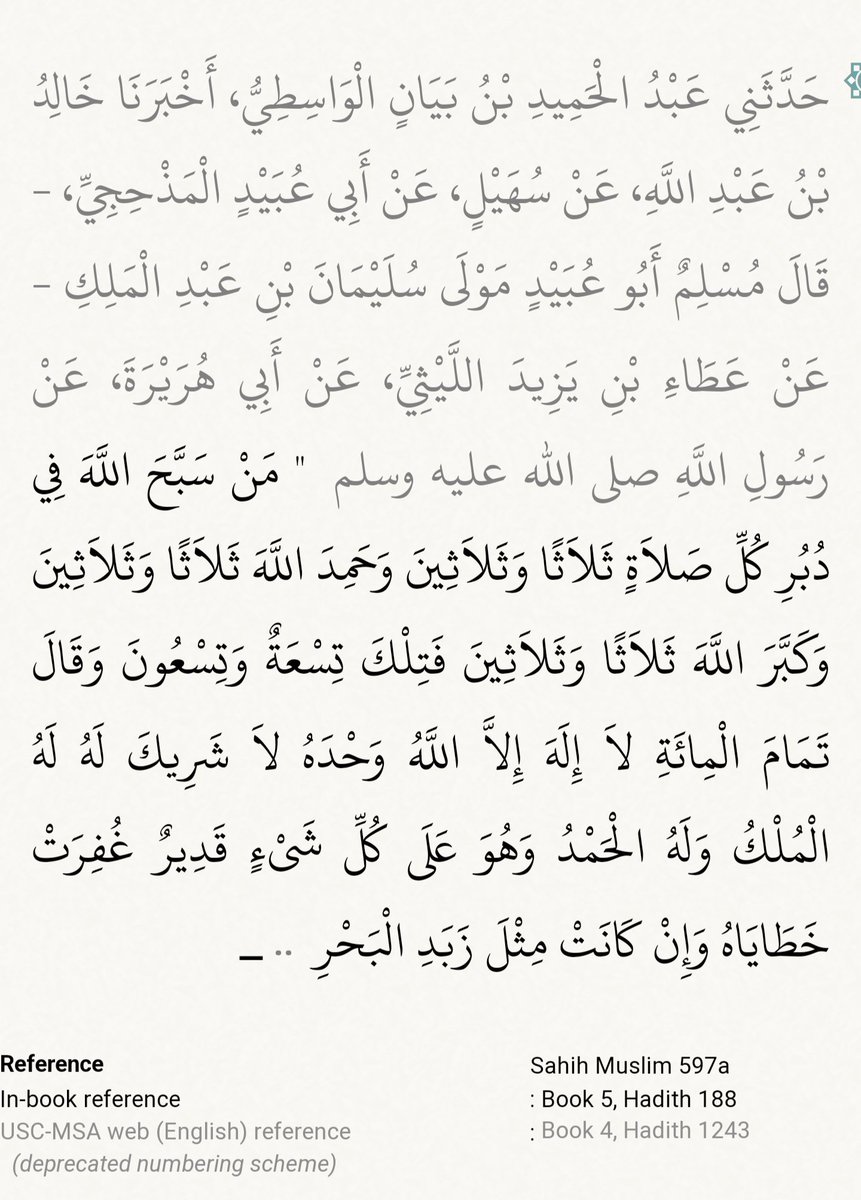 حَدَّثَنِي عَبْدُ الْحَمِيدِ بْنُ بَيَانٍ الْوَاسِطِيُّ، أَخْبَرَنَا خَالِدُ
بْنُ عَبْدِ اللَّهِ، عَنْ سُهَيْلٍ، عَنْ أَبِي عُبَيْدٍ الْمَذْحِجِيِّ، –
قَالَ مُسْلِمٌ أَبُو عُبَيْدٍ مَوْلَى سُلَيْمَانَ بْنِ عَبْدِ الْمَلِكِ –
عَنْ عَطَاءِ بْنِ يَزِيدَ اللَّيْثِيِّ، عَنْ أَبِي هُرَيْرَةَ، عَنْ
رَسُولِ اللَّهِ صلى الله عليه وسلم " مَنْ سَبَّحَ اللَّهَ فِي
دُبُرِ كُلِّ صَلاَةٍ ثَلاَثًا وَثَلاَثِينَ وَحَمِدَ اللَّهَ ثَلاَثًا وَثَلاَثِينَ
وَكَبَّرَ اللَّهَ ثَلاَثًا وَثَلاَثِينَ فَتِلْكَ تِسْعَةٌ وَتِسْعُونَ وَقَالَ
تَمَامَ الْمِائَةِ لاَ إِلَهَ إِلاَّ اللَّهُ وَحْدَهُ لاَ شَرِيكَ لَهُ لَهُ
الْمُلْكُ وَلَهُ الْحَمْدُ وَهُوَ عَلَى كُلِّ شَىْءٍ قَدِيرٌ غُفِرَتْ
خَطَايَاهُ وَإِنْ كَانَتْ مِثْلَ زَبَدِ الْبَحْرِ .. _
Reference Sahih Muslim 597a
In-book reference : Book 5, Hadith 188
USC-MSA web (English) reference : Book 4, Hadith 1243
(deprecated numbering scheme)